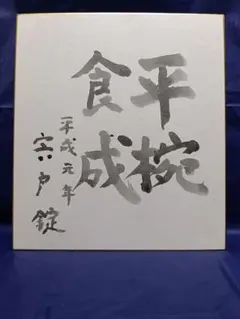 平椀
食成
平成元年
宍戸錠